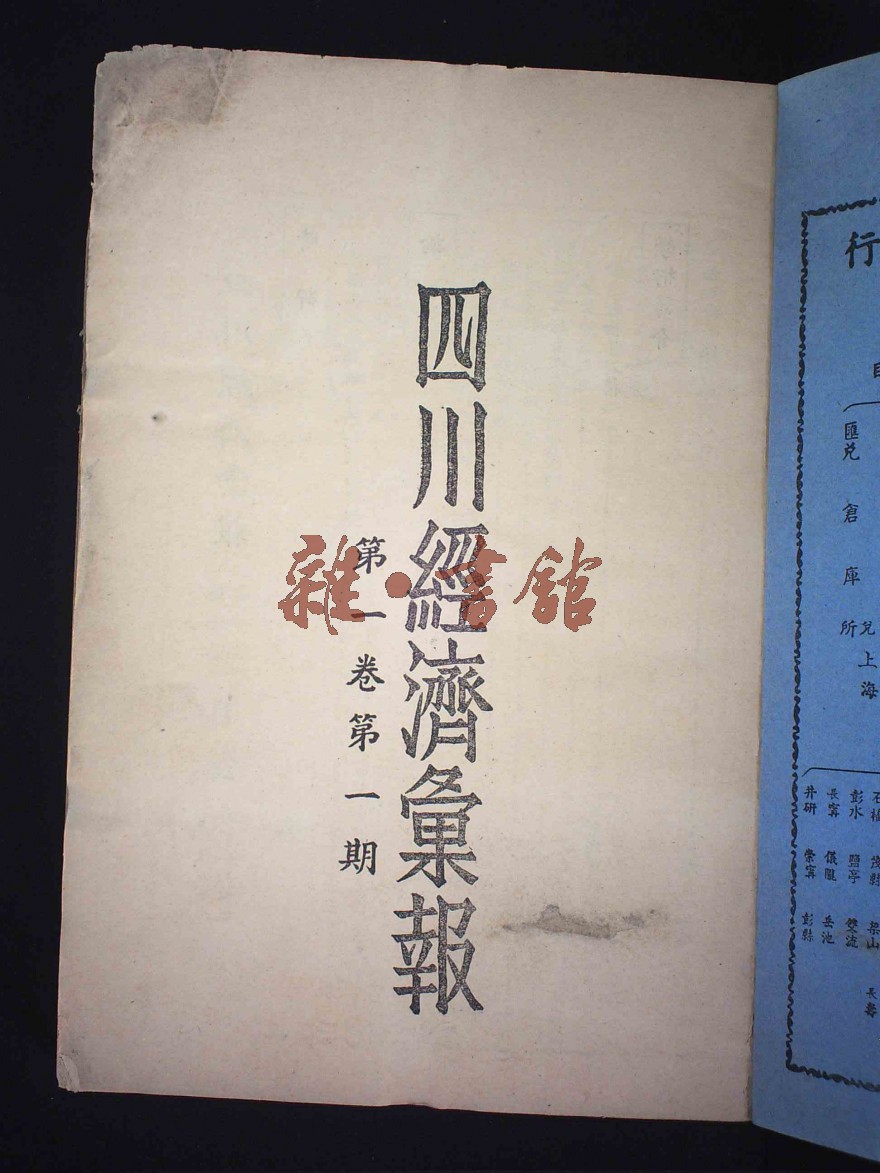 四川經濟彙報
第一卷第一期
雜·書館
行
匯兌
倉
庫
所
兌上海
彭水 鹽亭 雙流
長寧 儀隴 岳池
井研 崇寧 彭縣
茂縣
梁山
長壽